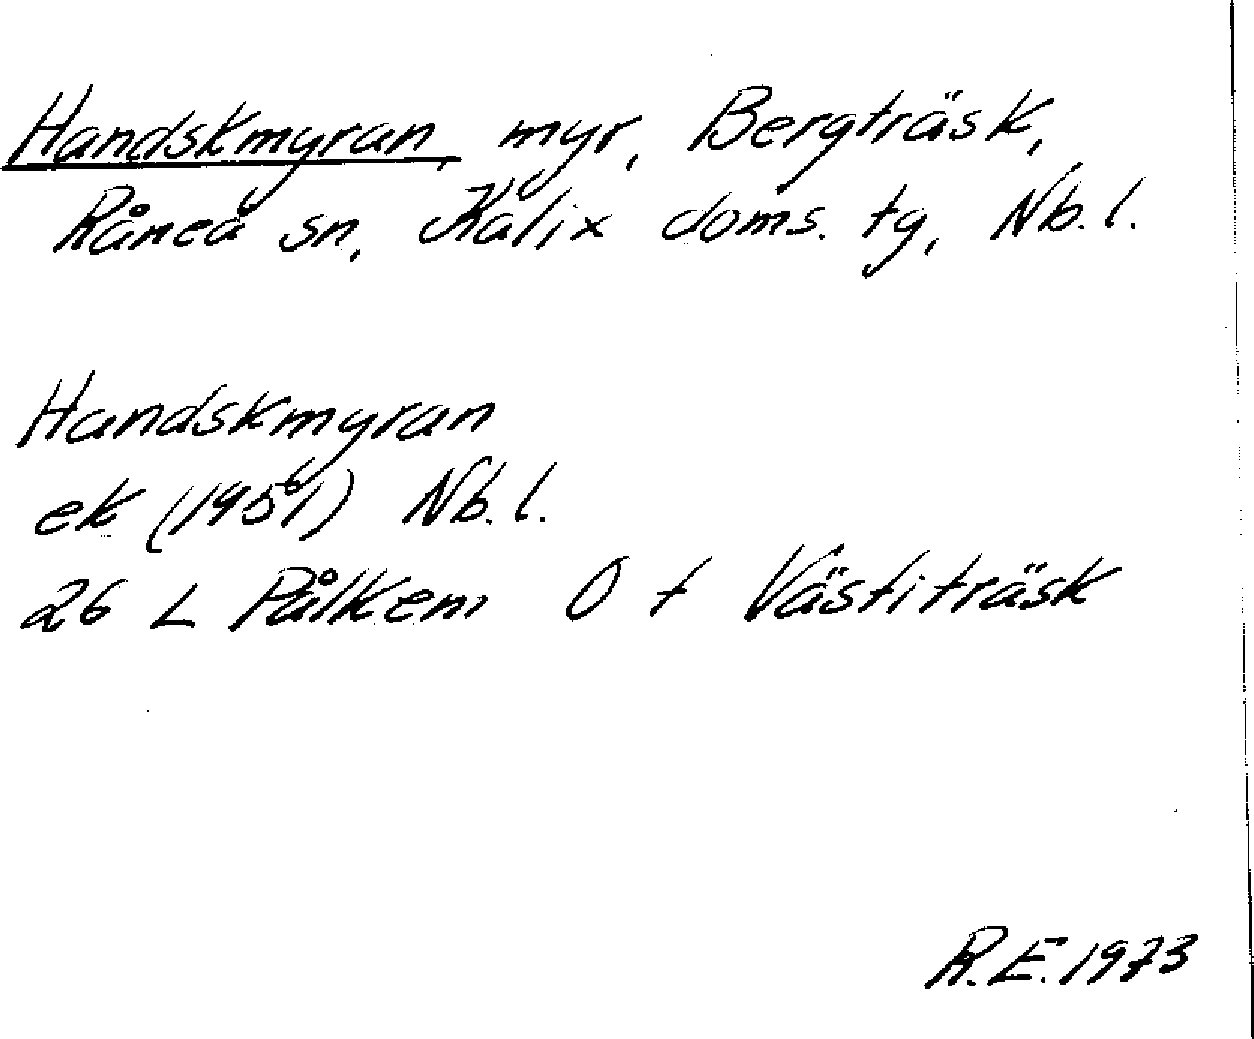 Handskmyran, myr, Bergträsk,
Råneå sn, Kalix doms. tg, Nb. l.
Handskmyran
ek (1951) Nb. l.
26 L Pålkem O t Västiträsk
R.E. 1973